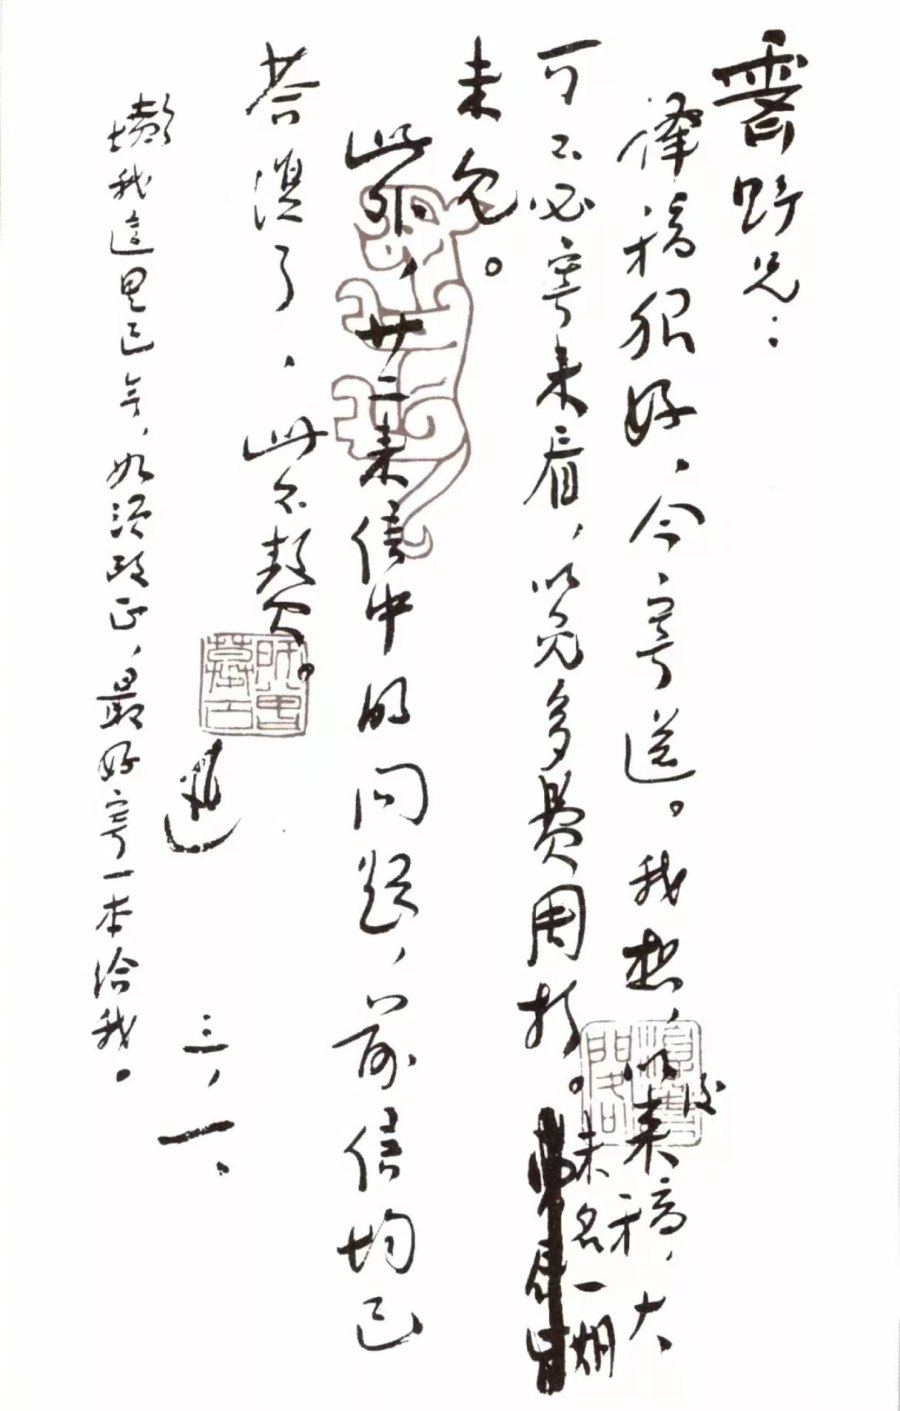 霽野兄：
偉稿很好，今寄還。我想，以後來稿，大
可不必寄來看，以免多費周折。未名一期
未見。
此外，廿二來信中的问题，前信均已
答復了，此不贅。
迅
三，一、
墳我這里已無，如須改正，最好寄一本給我。